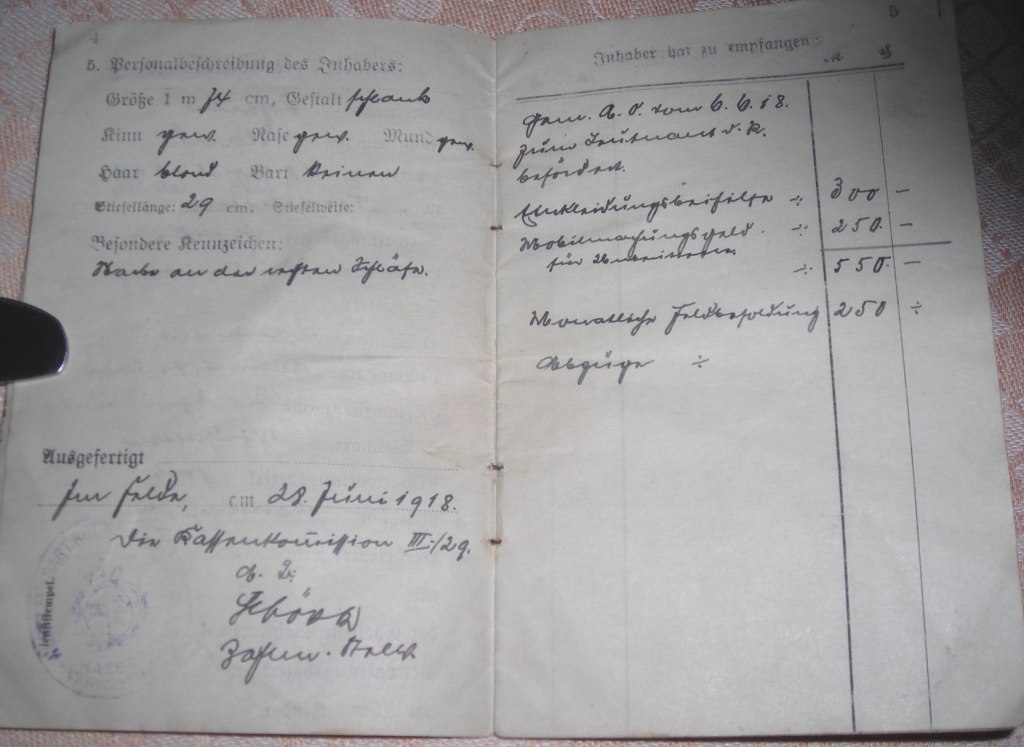 4
5. Personalbeschreibung des Inhabers:
Größe 1 m 74 cm, Gestalt schlank
Kinn gew. Nase gew. Mund gew.
Haar blond Bart keinen
Stiefellänge: 29 cm, Stiefelweite:
Besondere Kennzeichen:
Narbe an der rechten Schläfe.
Ausgefertigt
Im Felde, am 28. Juni 1918.
Die Kassenkommission III./29.
Zahlm. Stellv.
Dienststempel.
5
Inhaber hat zu empfangen:
M ₰
Gem. A. O. vom 6.6.18.
zum Leutnant d. R.
befördert.
Einkleidungsbeihilfe -:- 300 –
Mobilmachungsgeld -:- 250. –
für Unberittene -:- 550. –
Monatliche Feldbesoldung 250 ÷
Abzüge ÷